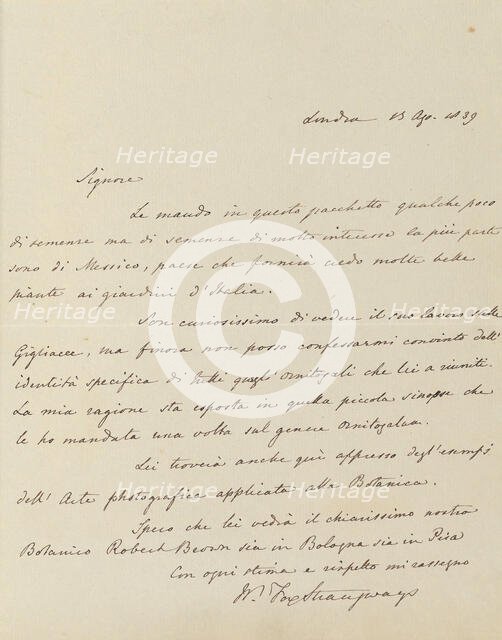 Londra 13 Ago. 1839
Signore
Le mando in questo pacchetto qualche poco
di semenze ma di semenze di molto interesse la più parte
sono di Messico, paese che fornirà credo molte belle
piante ai giardini d'Italia.
Son curiosissimo di vedere il suo lavoro sulle
Gigliacee, ma finora non posso confessarmi convinto dell'
identità specifica di tutti quegl' Ornitogali che lei a riuniti.
La mia ragione sta esposta in quella piccola sinopse che
le ho mandata una volta sul genere Ornitogalum.
Lei troverà anche quì appresso degl'esempj
dell' Arte photografica applicata alla Botanica.
Spero che lei vedrà il chiarissimo nostro
Botanico Robert Brown sia in Bologna sia in Pisa
Con ogni stima e rispetto mi rassegno
Wm. Fox Strangways
Heritage Heritage
Heritage Heritage
Heritage Heritage
Heritage Heritage